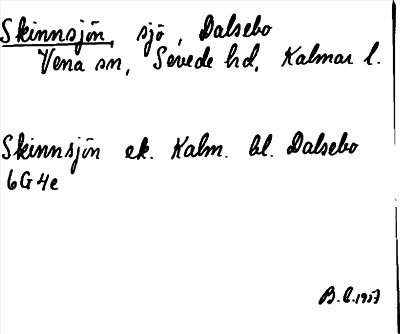 Skinnsjön, sjö, Dalsebo
Vena sn, Sevede hd, Kalmar l.
Skinnsjön ek. Kalm. bl. Dalsebo
6G4e
B.L. 1957